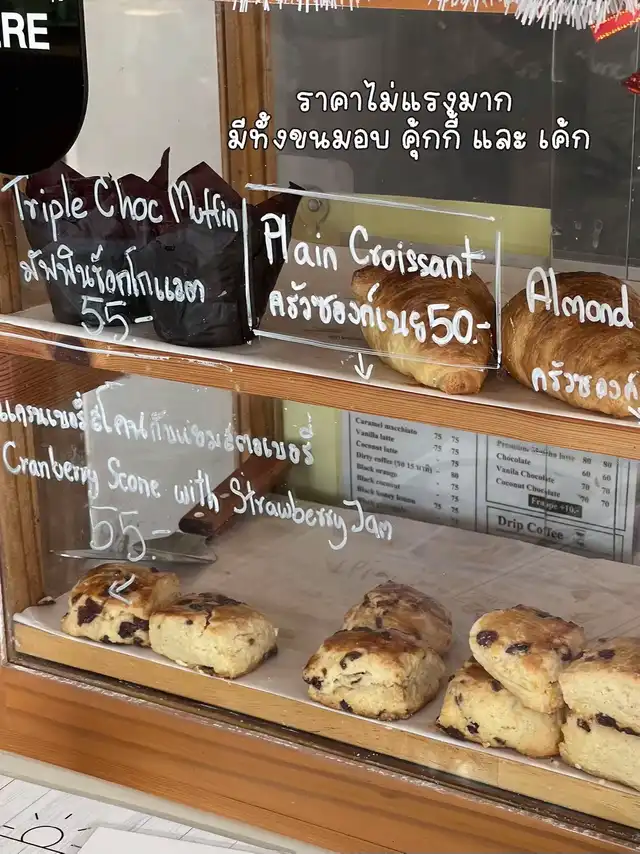 RE
ราคาไม่แรงมาก
มีทั้งขนมอบ คุ้กกี้ และ เค้ก
Triple Choc Muffin
มัฟฟินช็อกโกแลต
55.-
Plain Croissant
ครัวซองก์เนย 50.-
Almond
ครัวซองก์
แครนเบอร์รี่สโคนกับแยมสตอเบอรี่
Cranberry Scone with Strawberry Jam
55.-
Caramel macchiato 75 75
Vanilla latte 75 75
Coconut latte 75 75
Dirty coffee
Black orange
Black coconut
Black honey lemon
Chocolate 60 60
Vanila Chocolate 70 70
Coconut Chocolate 70 70
Frappe +10.-
Drip Coffee